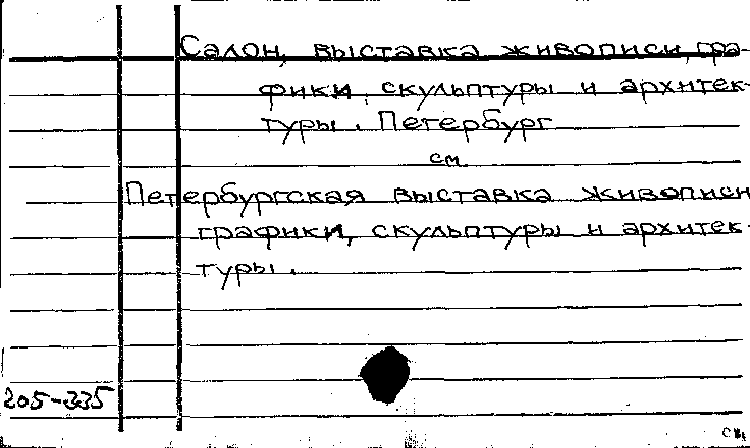 Салон, выставка живописи, гра-
фики, скульптуры и архитек-
туры. Петербург
см
Петербургская выставка живописи
графики, скульптуры и архитек-
туры.
205-335